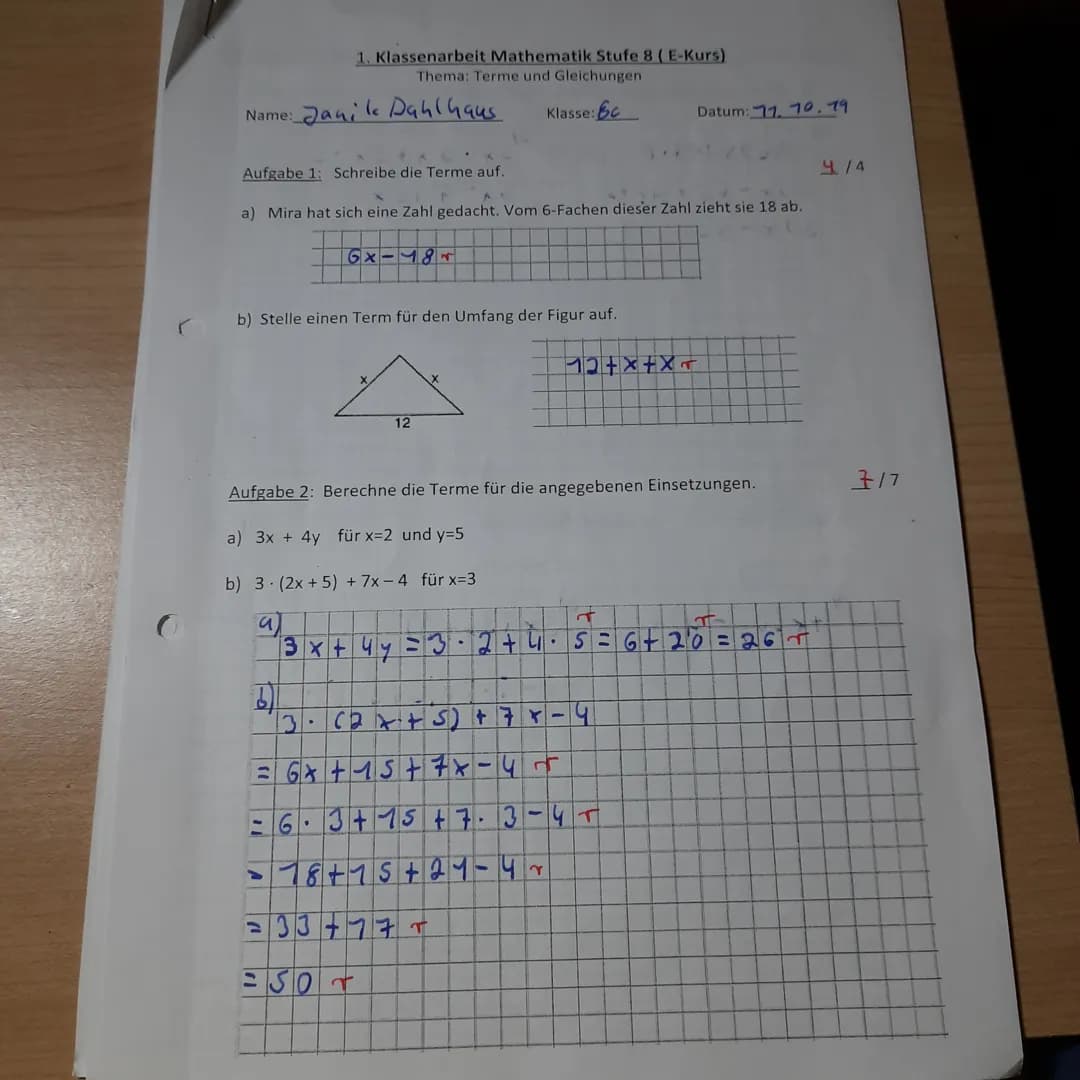 1. Klassenarbeit Mathematik Stufe 8 ( E-Kurs)
Thema: Terme und Gleichungen
Name: Janik Dahlhaus Klasse: 8c Datum: 11.10.19
Aufgabe 1: Schreibe die Terme auf. 4 / 4
a) Mira hat sich eine Zahl gedacht. Vom 6-Fachen dieser Zahl zieht sie 18 ab.
6x-18 r
b) Stelle einen Term für den Umfang der Figur auf.
x x
12
12+x+x r
Aufgabe 2: Berechne die Terme für die angegebenen Einsetzungen. 7 / 7
a) 3x + 4y für x=2 und y=5
b) 3 · (2x + 5) + 7x – 4 für x=3
a)
r r
3x+4y=3·2+4·5=6+20=26 r
b)
3·(2x+5)+7x-4
=6x+15+7x-4 r
=6·3+15+7·3-4 r
=18+15+21-4 r
=33+17 r
=50 r